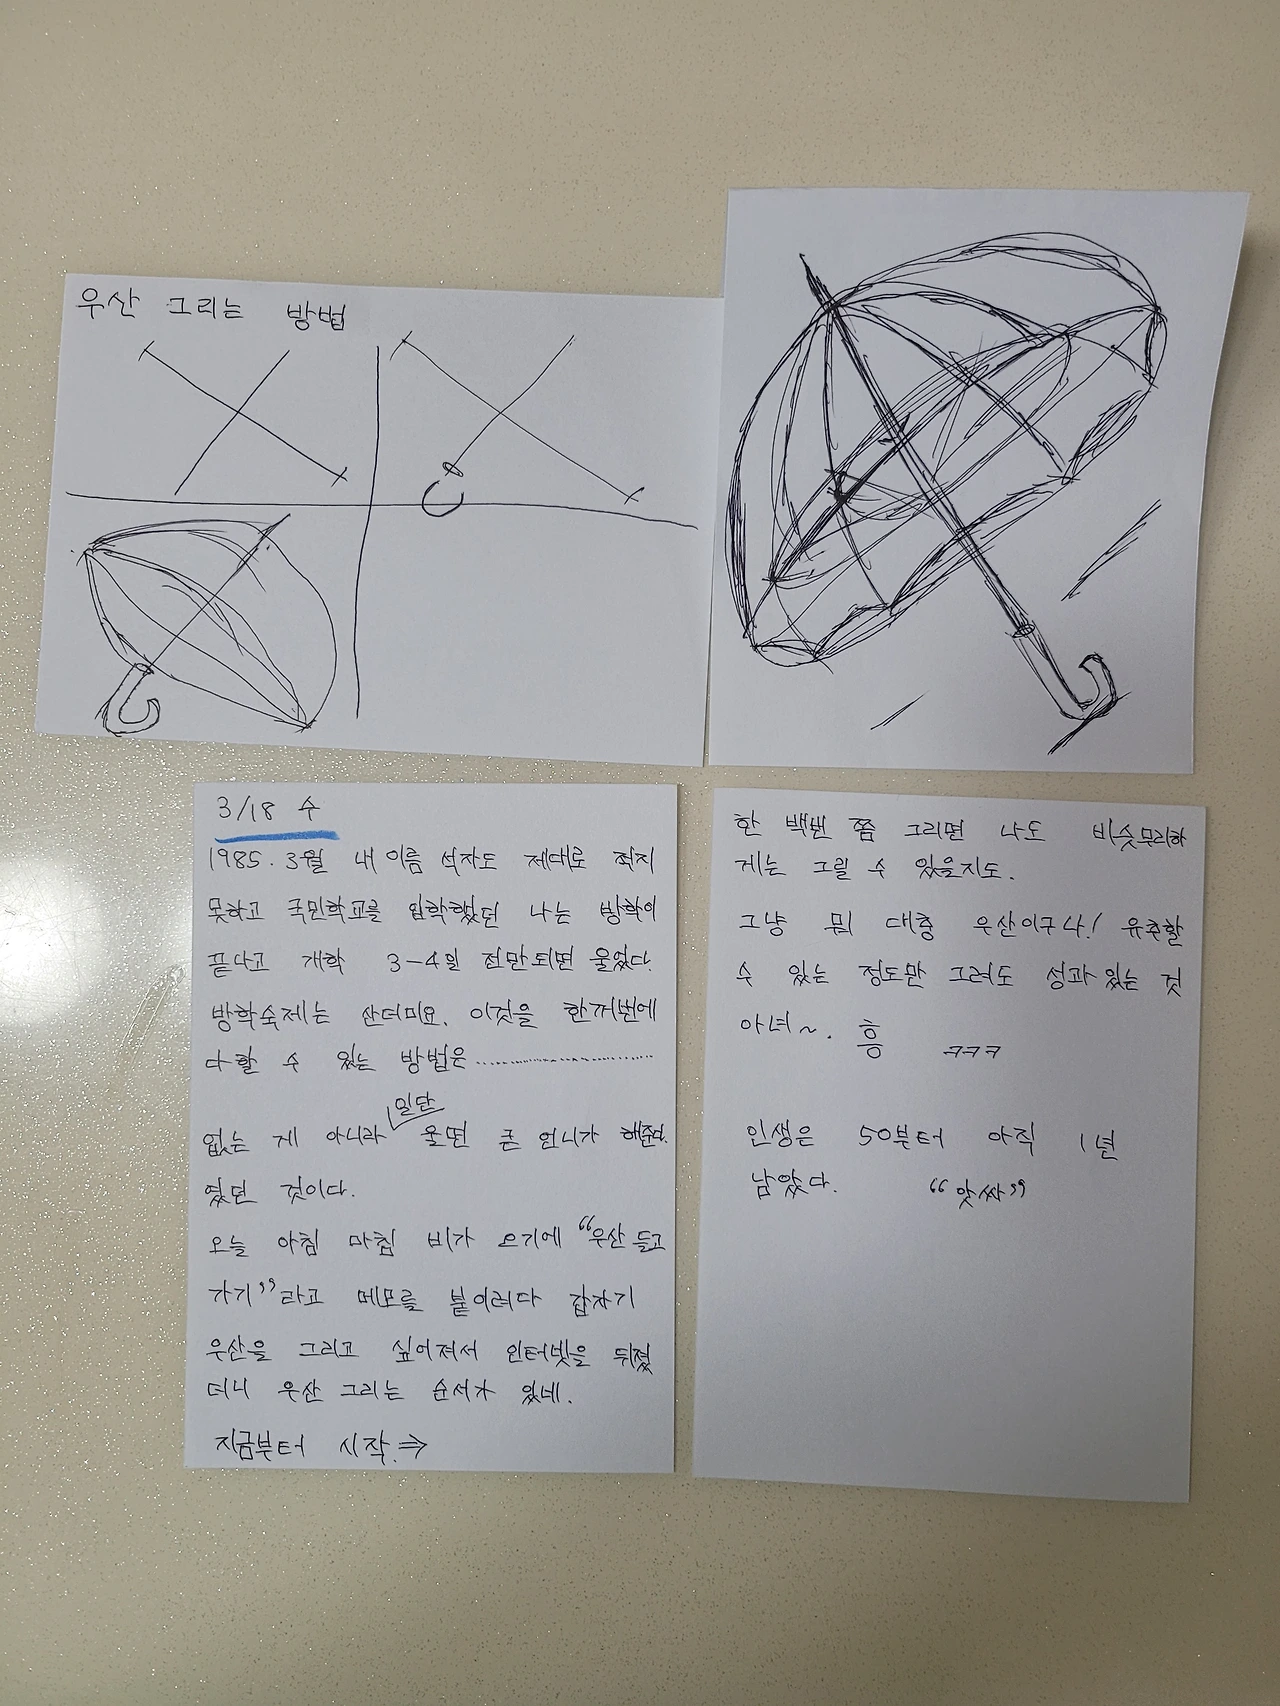 우산 그리는 방법
3/18 수
1985. 3월 내 이름 석자도 제대로 적지
못하고 국민학교를 입학했던 나는 방학이
끝나고 개학 3-4일 전만되면 울었다.
방학숙제는 산더미요. 이것을 한꺼번에
다할 수 있는 방법은.......................
없는 게 아니라 일단 울면 큰 언니가 해준다.
였던 것이다.
오늘 아침 마침 비가 오기에 “우산 들고
가기”라고 메모를 붙이려다 갑자기
우산을 그리고 싶어져서 인터넷을 뒤졌
더니 우산 그리는 순서가 있네.
지금부터 시작.⇒
한 백번 쯤 그리면 나도 비슷무리하
게는 그릴 수 있을지도.
그냥 뭐 대충 우산이구나! 유추할
수 있는 정도만 그려도 성과 있는 것
아녀~. 흥 ㅋㅋㅋ
인생은 50부터 아직 1년
남았다. “앗싸”